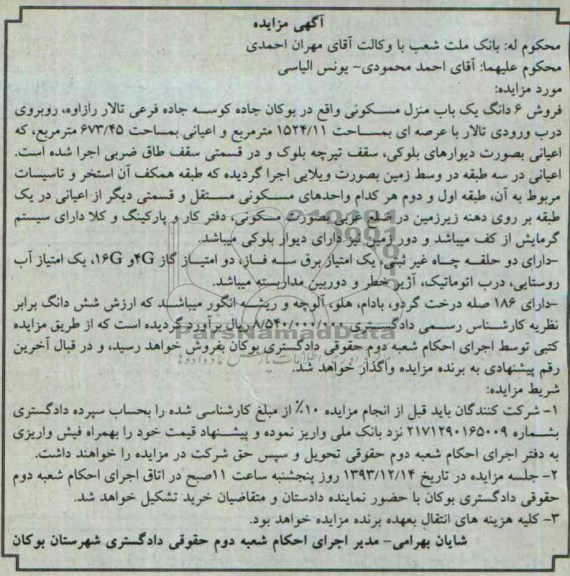 آگهی مزایده
محکوم له: بانک ملت شعب با وکالت آقای مهران احمدی
محکوم علیهما: آقای احمد محمودی- یونس الیاسی
مورد مزایده:
فروش ۶ دانگ یک باب منزل مسکونی واقع در بوکان جاده کوسه جاده فرعی تالار رازاوه، روبروی
درب ورودی تالار با عرصه ای بمساحت ۱۵۲۴/۱۱ مترمربع و اعیانی بمساحت ۶۷۳/۴۵ مترمربع، که
اعیانی بصورت دیوارهای بلوکی، سقف تیرچه بلوک و در قسمتی سقف طاق ضربی اجرا شده است.
اعیانی در سه طبقه در وسط زمین بصورت ویلایی اجرا گردیده که طبقه همکف آن استخر و تاسیسات
مربوط به آن، طبقه اول و دوم هر کدام واحدهای مسکونی مستقل و قسمتی دیگر از اعیانی در یک
طبقه بر روی دهنه زیرزمین در ضلع غربی بصورت مسکونی، دفتر کار و پارکینگ و کلا دارای سیستم
گرمایش از کف میباشد و دور زمین نیز دارای دیوار بلوکی میباشد.
-دارای دو حلقه چاه غیر ثبتی، یک امتیاز برق سه فاز، دو امتیاز گاز 4G و 16G، یک امتیاز آب
روستایی، درب اتوماتیک، آژیر خطر و دوربین مداربسته میباشد.
-دارای ۱۸۶ صله درخت گردو، بادام، هلو، آلوچه و ریشه انگور میباشد که ارزش شش دانگ برابر
نظریه کارشناس رسمی دادگستری ۸/۵۴۰/۰۰۰/۰۰۰ ریال برآورد گردیده است که از طریق مزایده
کتبی توسط اجرای احکام شعبه دوم حقوقی دادگستری بوکان بفروش خواهد رسید، و در قبال آخرین
رقم پیشنهادی به برنده مزایده واگذار خواهد شد.
ParsNamadData
شریط مزایده:
۱- شرکت کنندگان باید قبل از انجام مزایده ۱۰٪ از مبلغ کارشناسی شده را بحساب سپرده دادگستری
بشماره ۲۱۷۱۲۹۰۱۶۵۰۰۹ نزد بانک ملی واریز نموده و پیشنهاد قیمت خود را بهمراه فیش واریزی
به دفتر اجرای احکام شعبه دوم حقوقی تحویل و سپس حق شرکت در مزایده را خواهند داشت.
۲- جلسه مزایده در تاریخ ۱۳۹۳/۱۲/۱۴ روز پنجشنبه ساعت ۱۱صبح در اتاق اجرای احکام شعبه دوم
حقوقی دادگستری بوکان با حضور نماینده دادستان و متقاضیان خرید تشکیل خواهد شد.
۳- کلیه هزینه های انتقال بعهده برنده مزایده خواهد بود.
شایان بهرامی- مدیر اجرای احکام شعبه دوم حقوقی دادگستری شهرستان بوکان